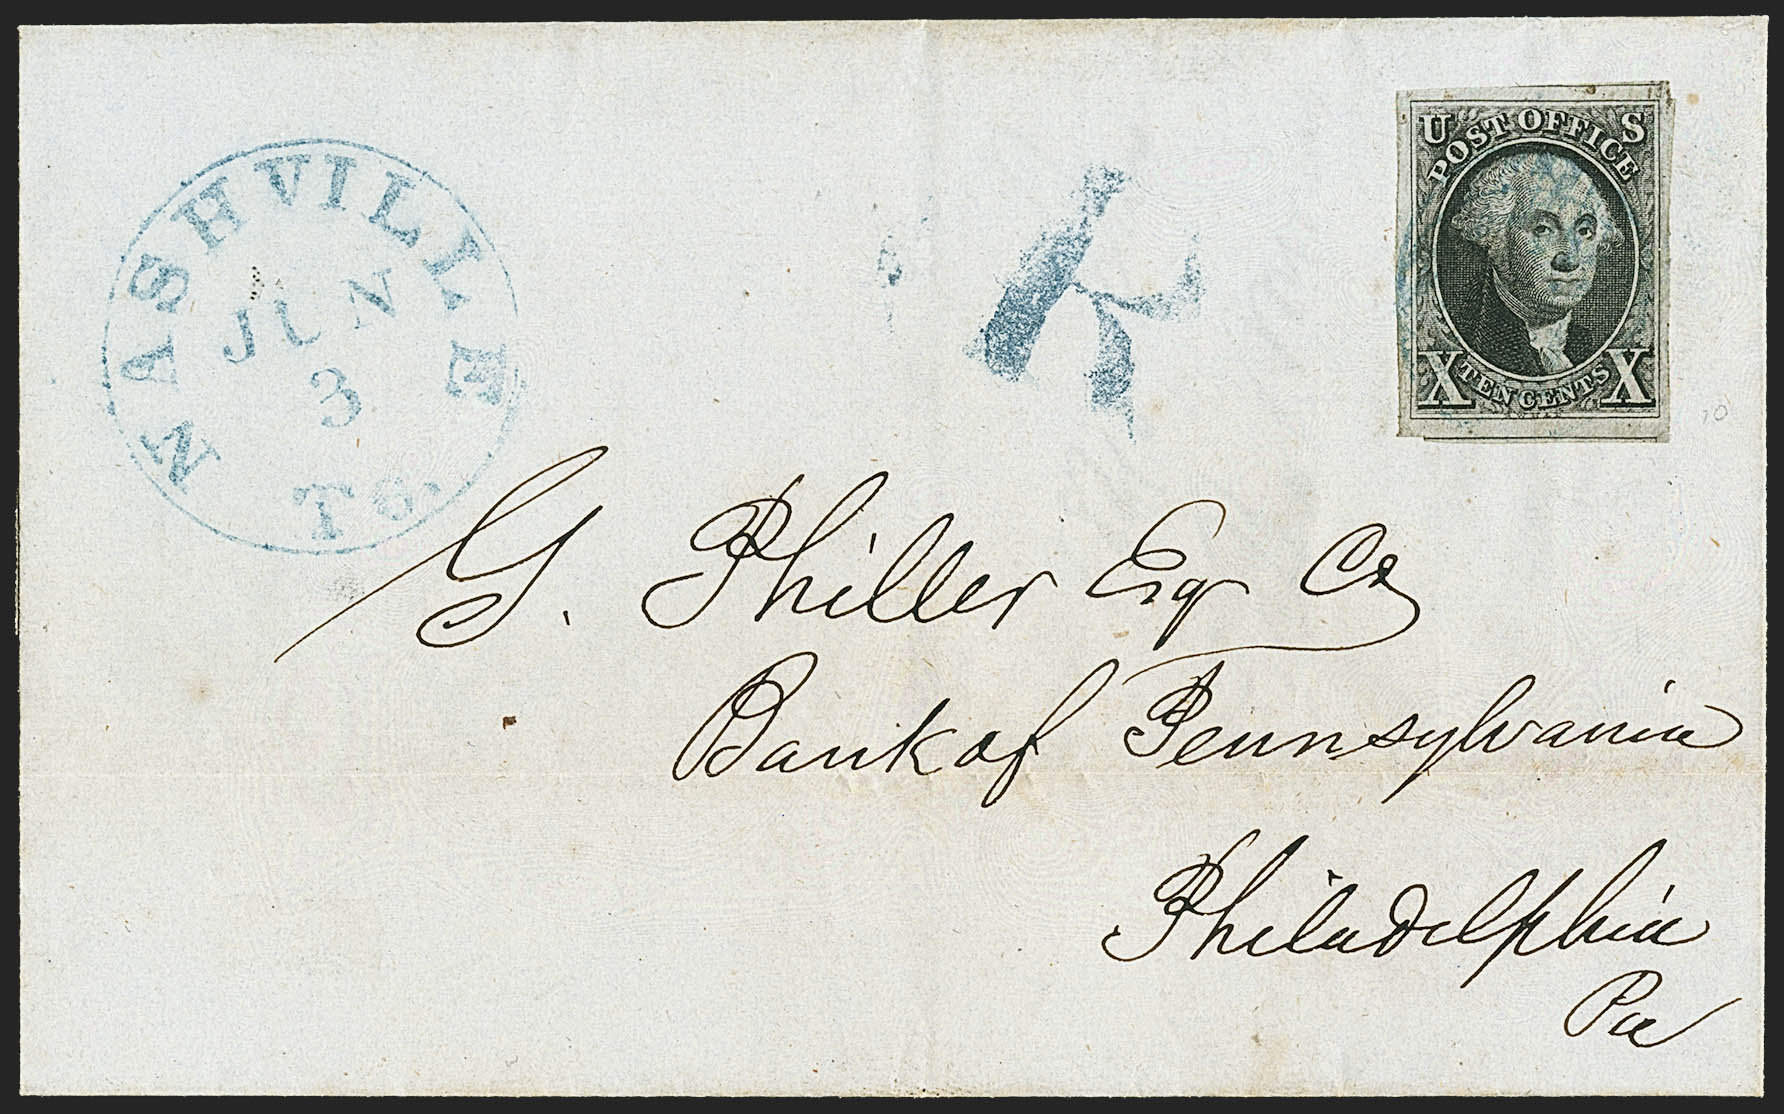 NASHVILLE
JUN
3
Te.
U S
POST OFFICE
X TEN CENTS X
10
G. Philler Esq Cs
Bank of Pennsylvania
Philadelphia
Pa